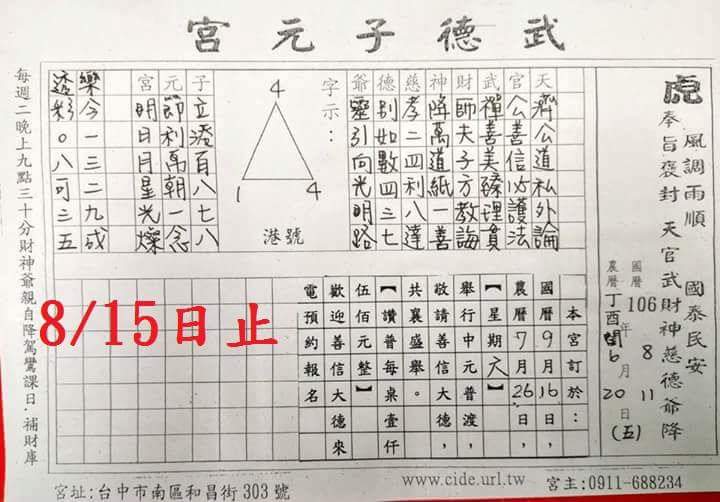 武德子元宮
虎
風調雨順 國泰民安
奉旨褒封 天官武財神慈德爺降
國曆106年8月11日(五)
農曆丁酉閏6月20日
天濟公道私外論
官公善信必護法
武禪善美臻理貫
財師夫子方教誨
神降萬道紙一善
慈孝二四利八達
德別如數四三七
爺靈引向光明路
字示：
4
1 4
港號
子立添百八七八
元節利萬朝一念
宮明日月星光燦
樂今一三二九成
透彩0八可三五
本宮訂於：
國曆9月16日，
農曆7月26日，
【星期六】
舉行中元普渡，
敬請善信大德，
共襄盛舉。
【讚普每桌壹仟
伍佰元整】
歡迎善信大德來
電預約報名
8/15日止
每週二晚上九點三十分財神爺親自降駕鸞課日．補財庫
www.cide.url.tw
宮址:台中市南區和昌街303號
宮主:0911-688234